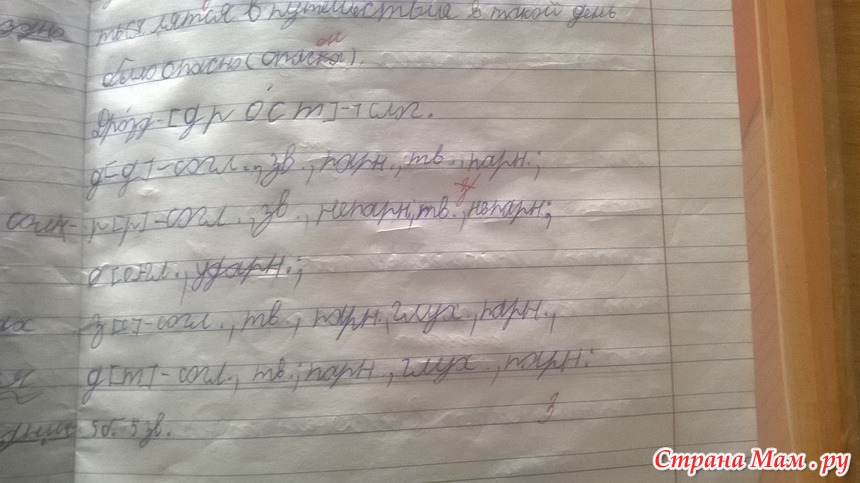 зано ться лятся в путешествие в такой день
было опасно (опаска). он
Дрозд - [д р о́ с т] - 1 слог.
д [д] - согл., зв., парн., тв., парн.;
солн- р [р] - согл., зв., непарн., тв., непарн.;
о [о] гл., ударн.;
их з [с] - согл., тв., парн., глух., парн.,
я д [т] - согл., тв., парн., глух., парн.
5б. 5 зв.
3
Страна Мам.ру